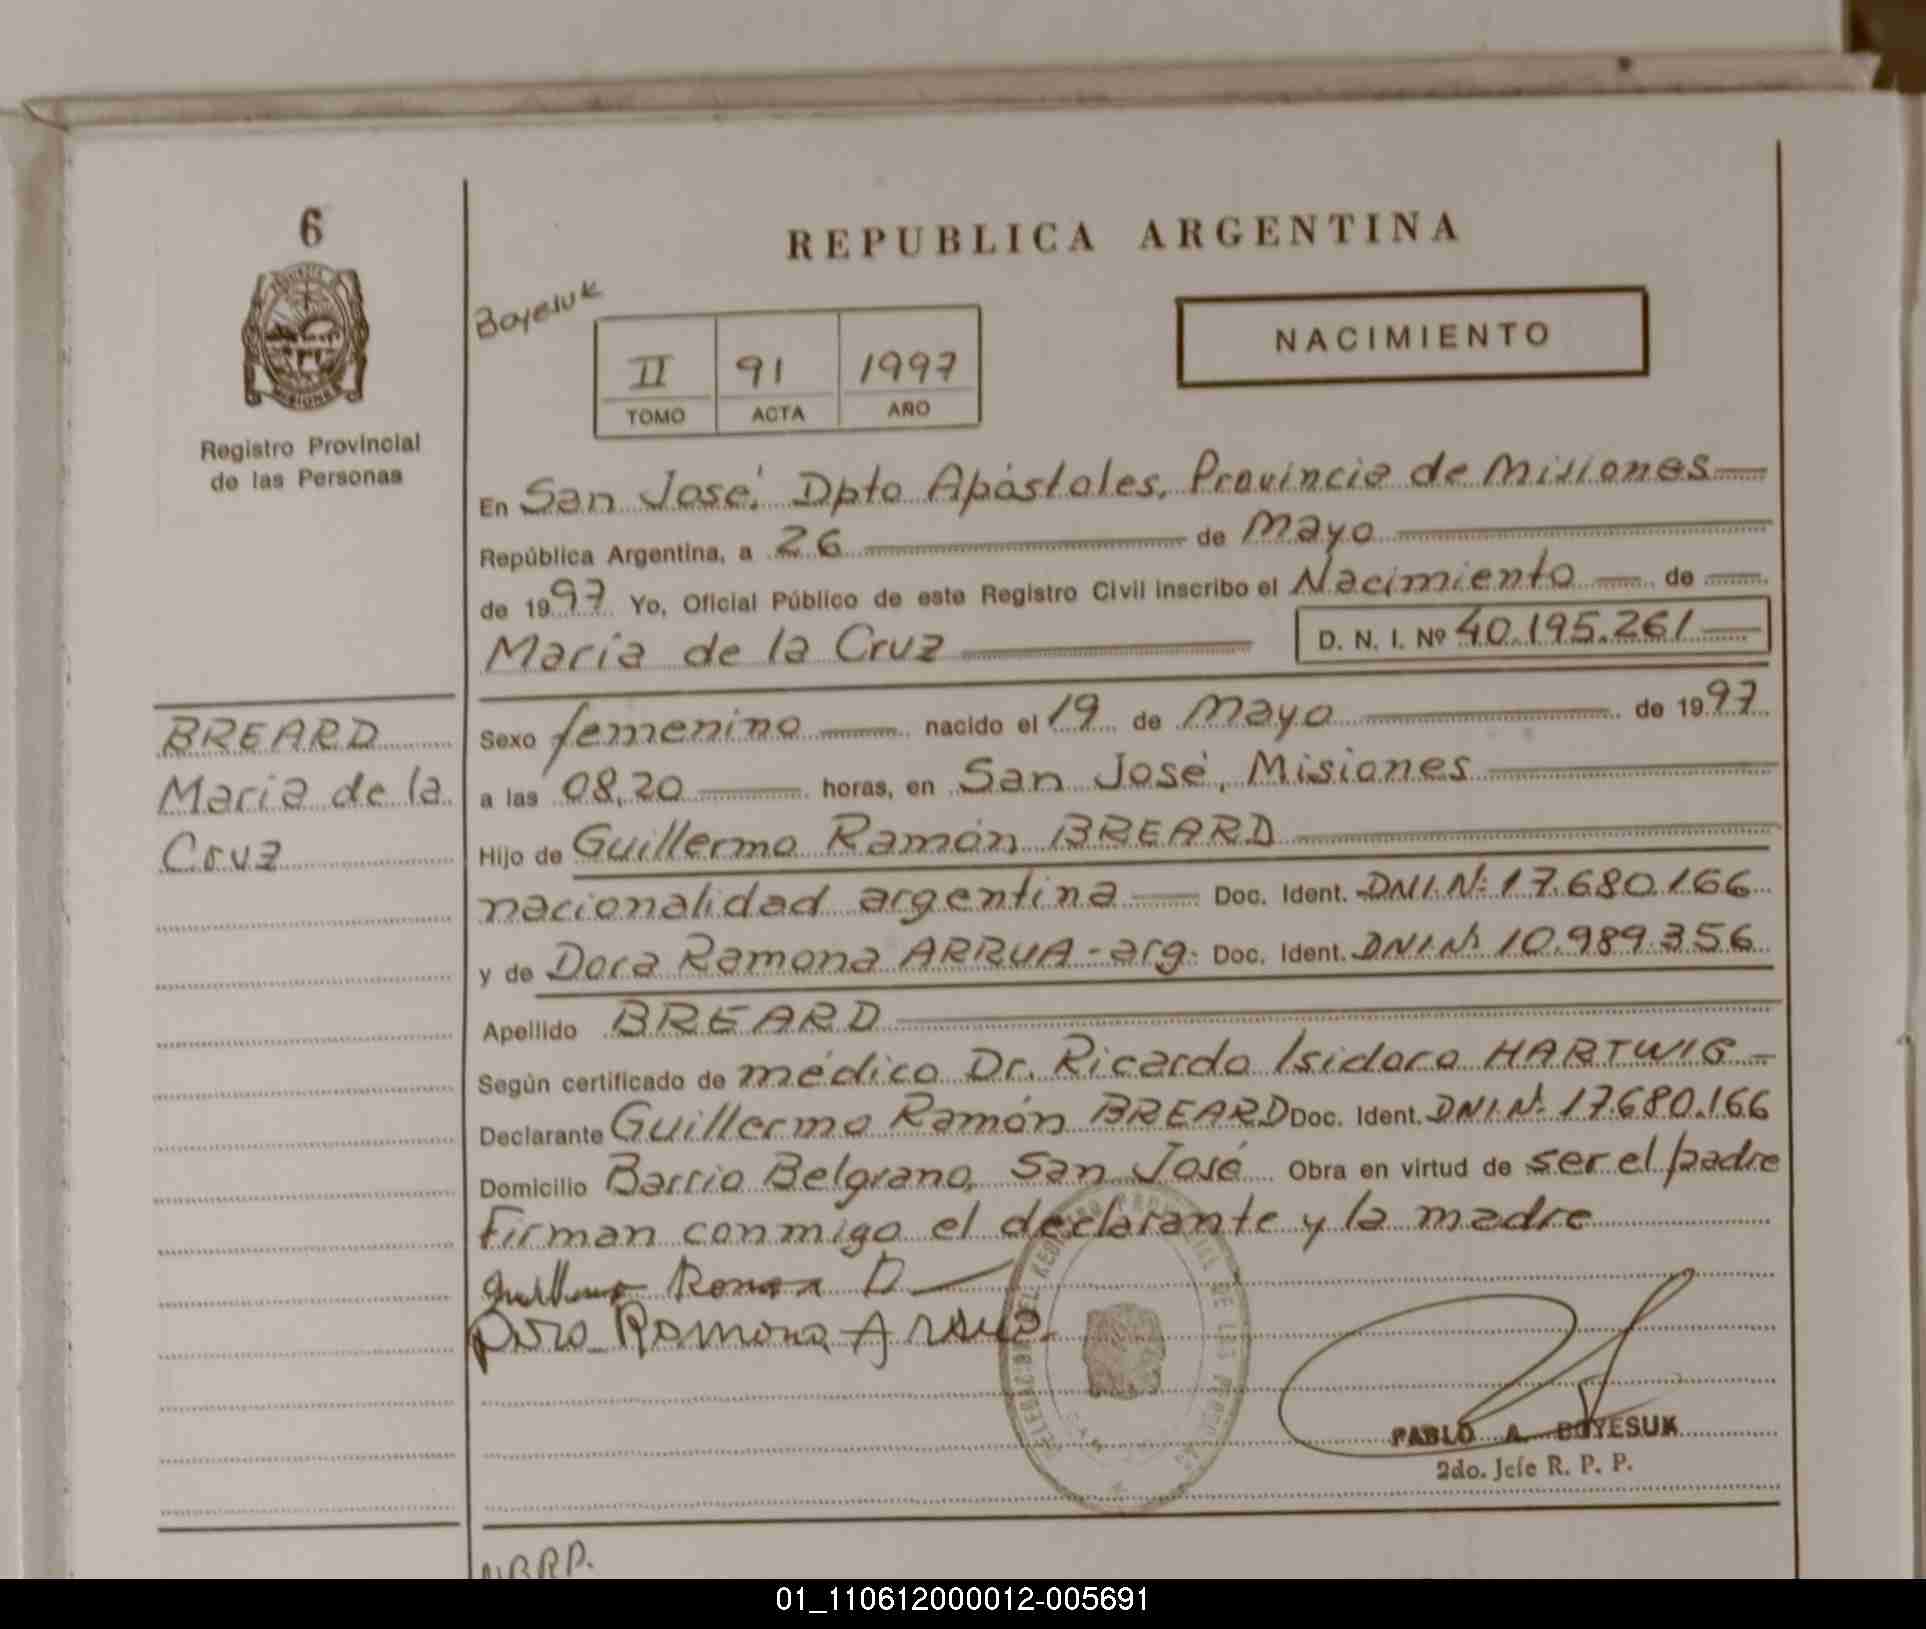 6
REPUBLICA ARGENTINA
Boyesuk
NACIMIENTO
II 91 1997
TOMO ACTA AÑO
Registro Provincial
de las Personas
En San José, Dpto Apóstoles, Provincia de Misiones
República Argentina, a 26 de Mayo
de 1997 Yo, Oficial Público de este Registro Civil inscribo el Nacimiento de
María de la Cruz D. N. I. Nº 40.195.261
BREARD
María de la
Cruz
Sexo femenino nacido el 19 de Mayo de 1997
a las 08,20 horas, en San José, Misiones
Hijo de Guillermo Ramón BREARD
nacionalidad argentina Doc. Ident. DNI.Nº 17.680.166
y de Dora Ramona ARRUA - arg. Doc. Ident. DNI.Nº 10.989.356
Apellido BREARD
Según certificado de médico Dr. Ricardo Isidoro HARTWIG
Declarante Guillermo Ramón BREARD Doc. Ident. DNI.Nº 17.680.166
Domicilio Barrio Belgrano, San José Obra en virtud de ser el padre
Firman conmigo el declarante y la madre
Guillermo Ramon B
Dora Ramona Arrua
REGISTRO PROVINCIAL DE LAS PERSONAS
PABLO A. BOYESUK
2do. Jefe R. P. P.
N.B.R.P.
01_110612000012-005691